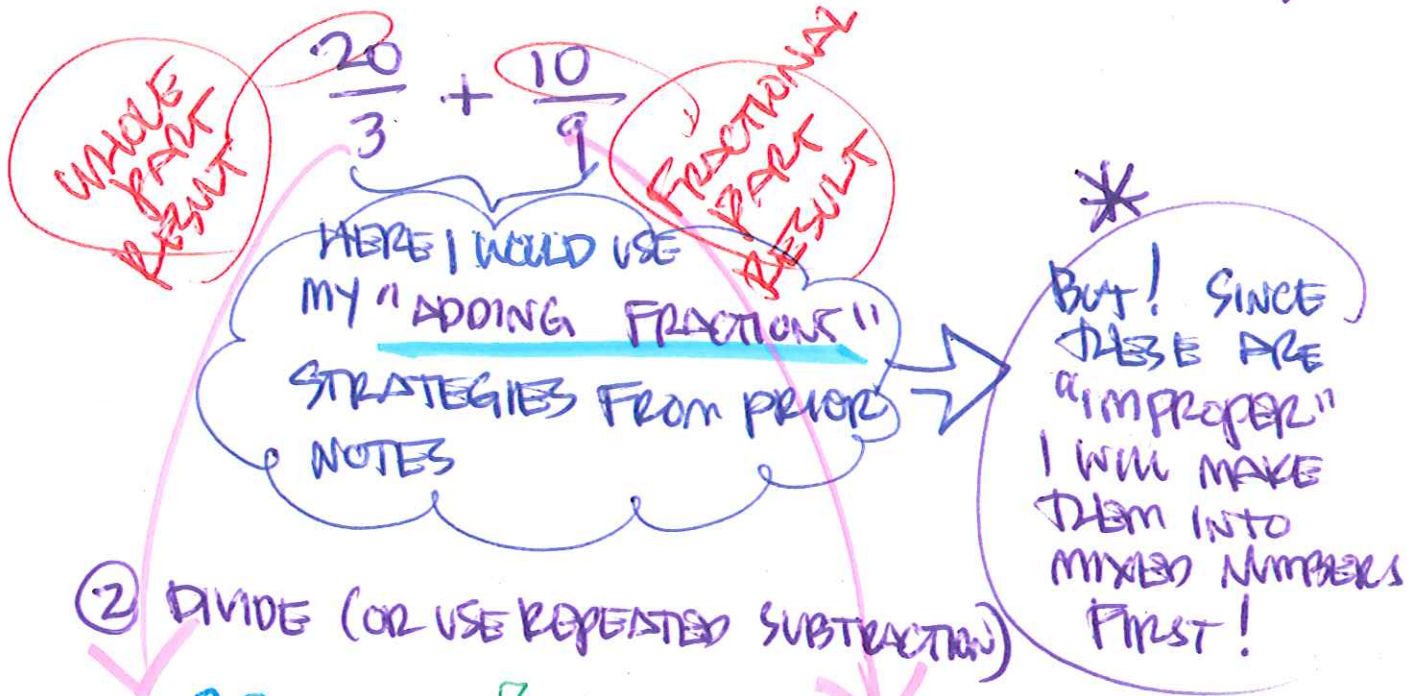 20/3 + 10/9
WHOLE
PART
RESULT
FRACTIONAL
PART
RESULT
HERE I WOULD USE
MY "ADDING FRACTIONS"
STRATEGIES FROM PRIOR
NOTES
*
BUT! SINCE
THESE ARE
"IMPROPER"
I WILL MAKE
THEM INTO
MIXED NUMBERS
FIRST!
② DIVIDE (OR USE REPEATED SUBTRACTION)